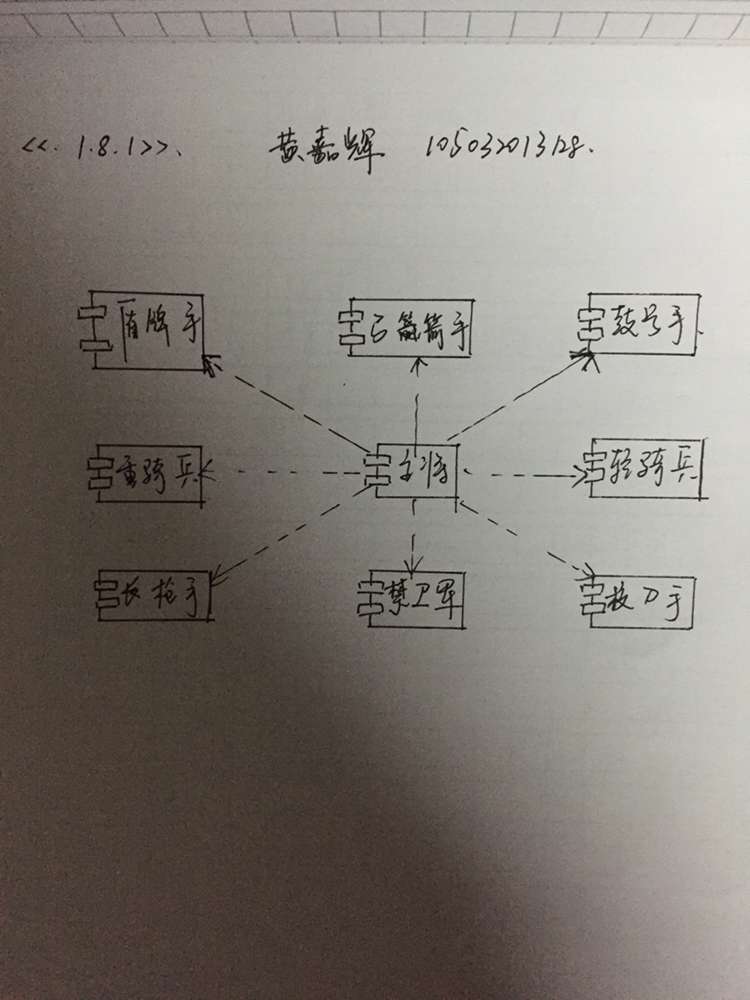 <<. 1.8.1>>. 黄嘉辉 105032013128.
盾牌手 弓箭手 鼓号手
重骑兵 主将 轻骑兵
长枪手 禁卫军 校刀手